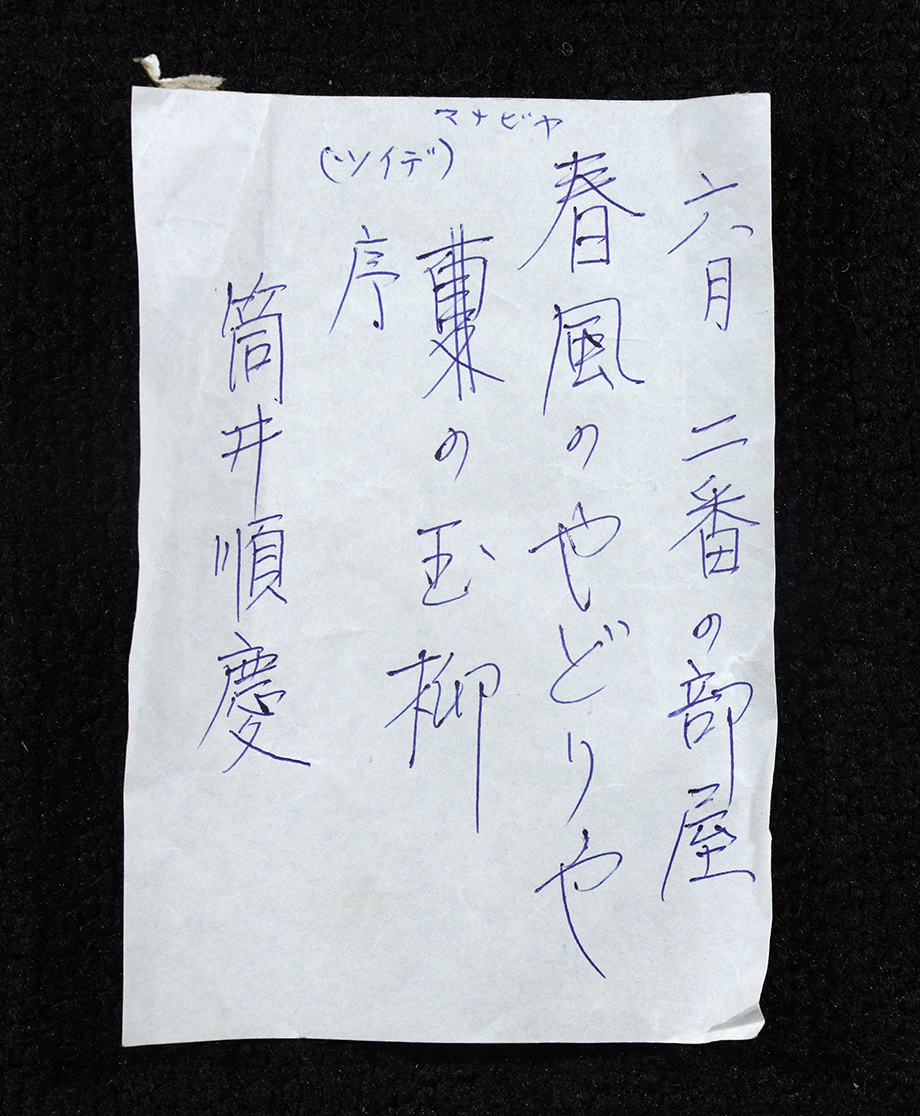 マナビヤ
(ツイデ)
六月 二番の部屋
春風のやどりや
の玉柳
序
筒井順慶